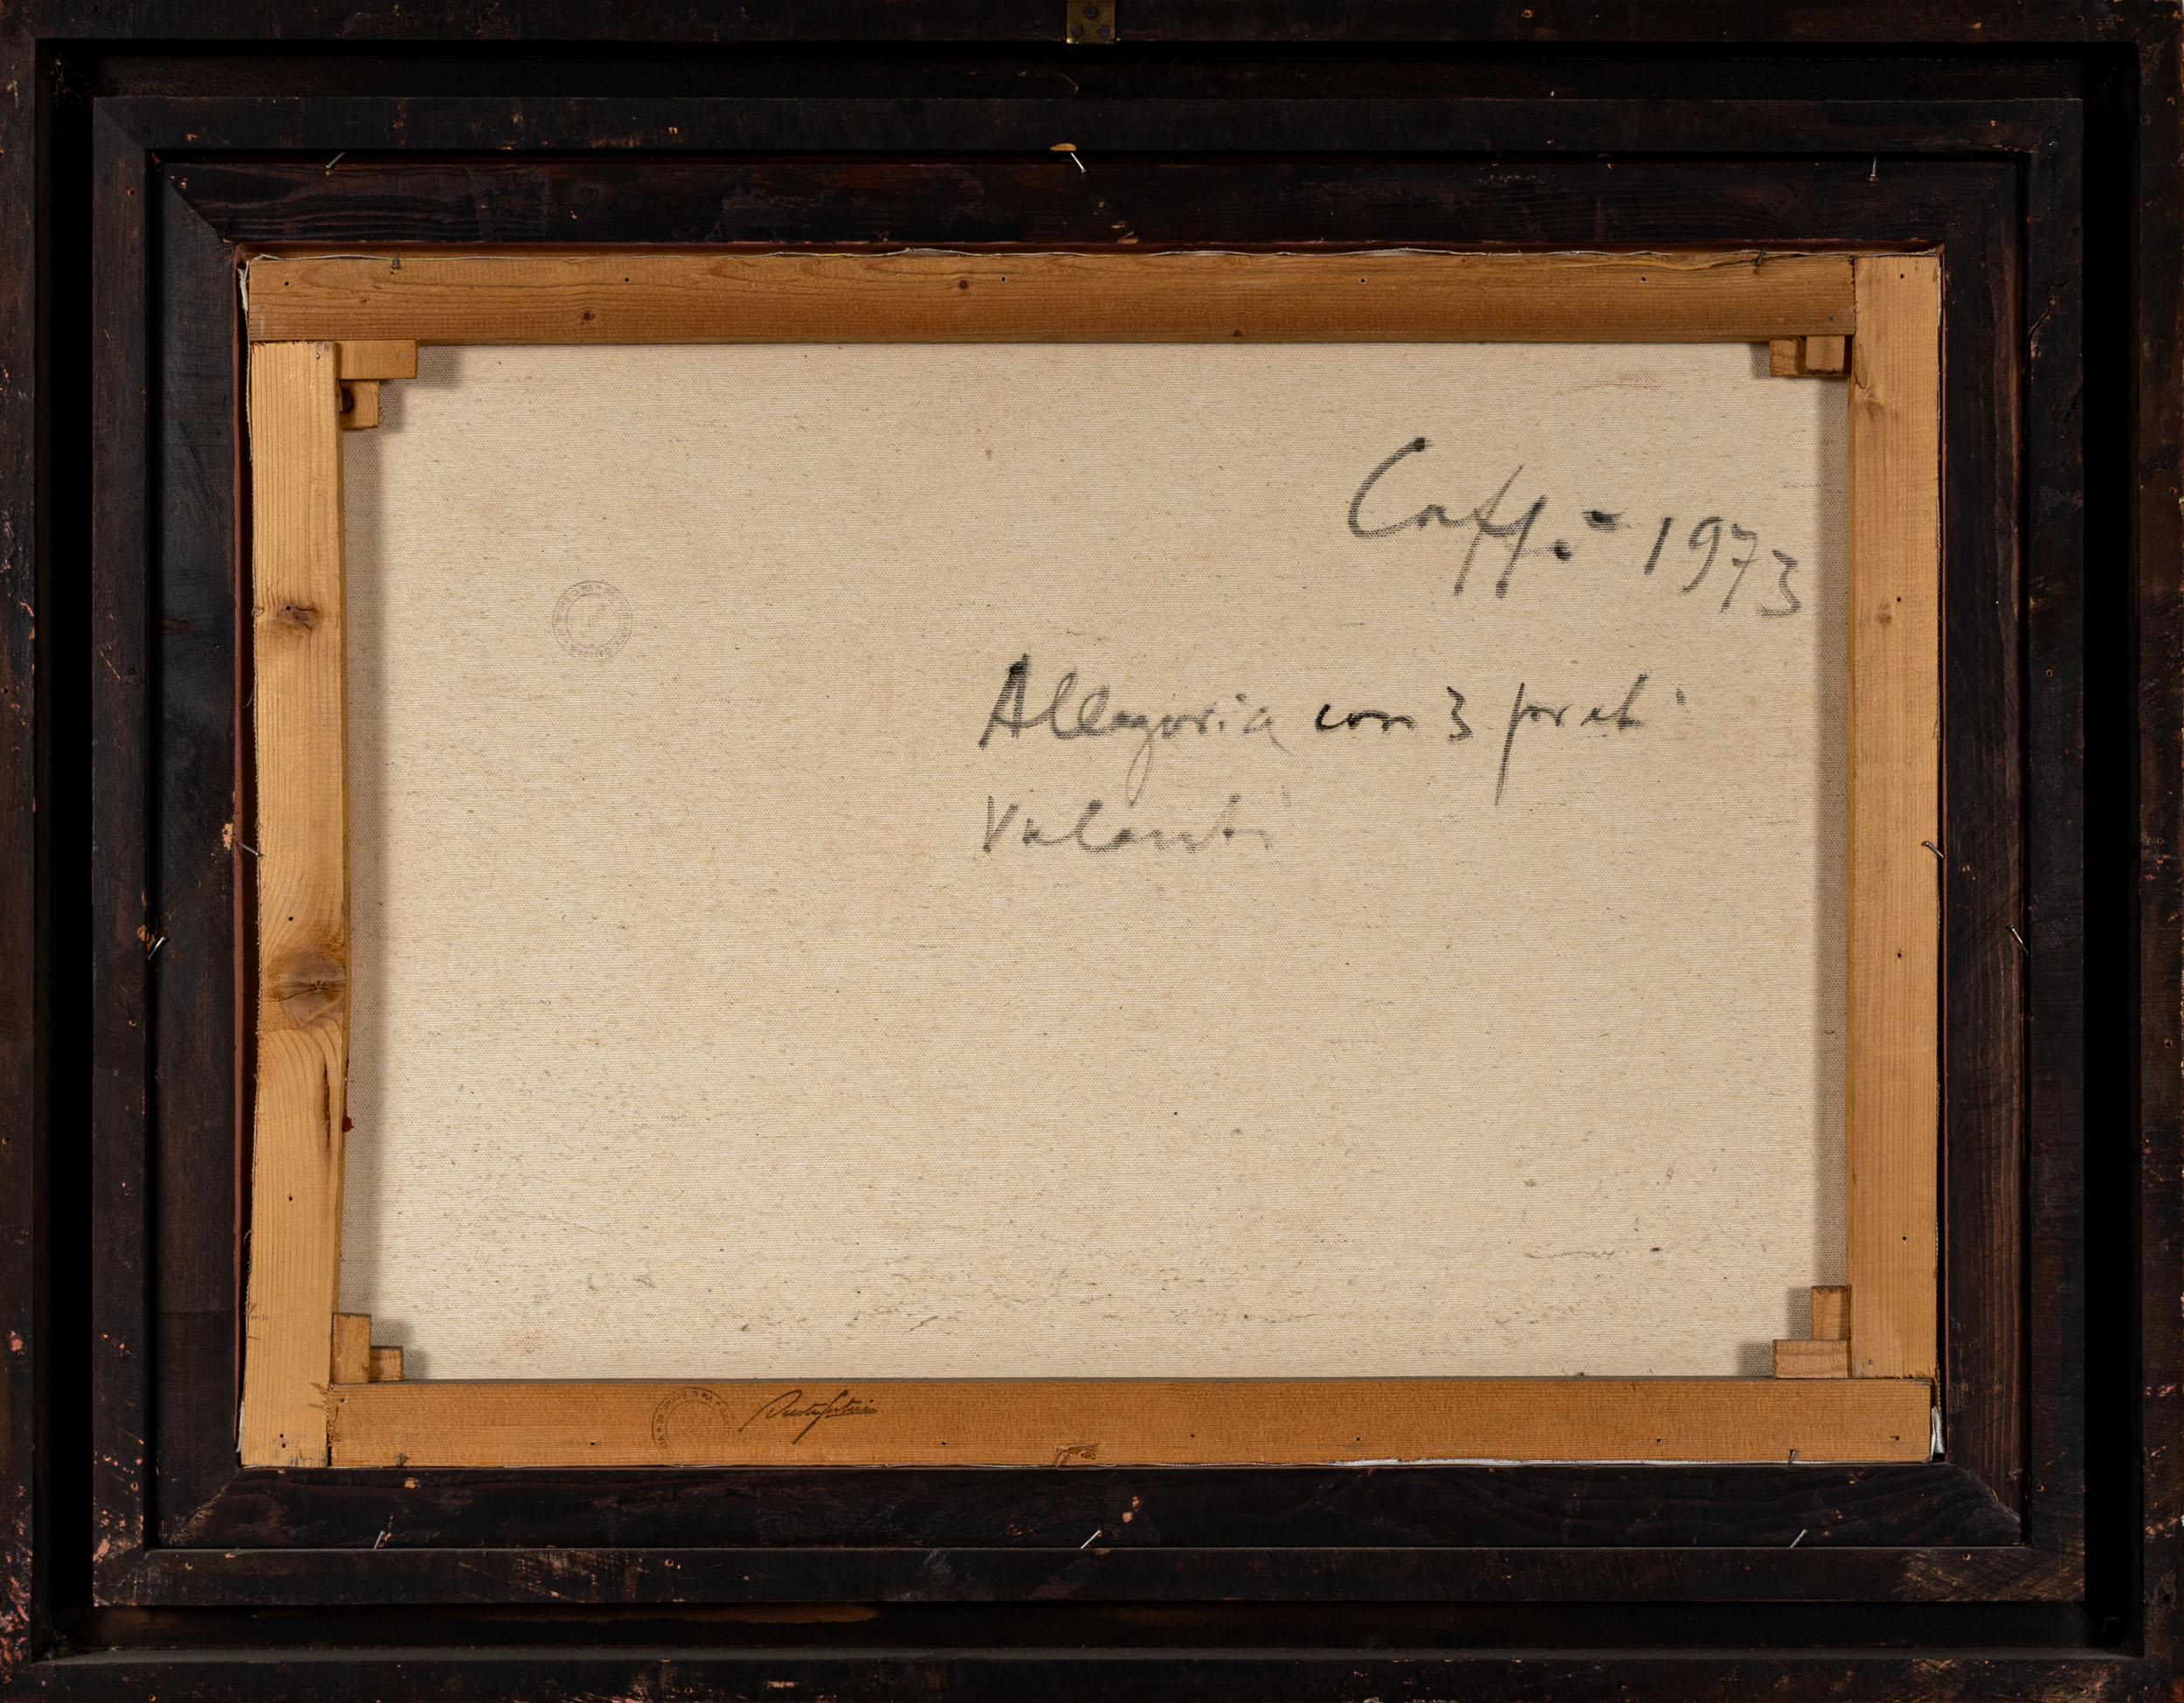 Caffè - 1973
Allegoria con 3 preti
Volanti